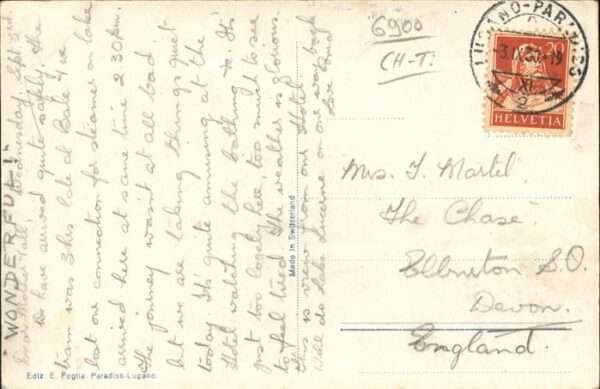 "WONDERFUL!"
Wednesday, Sept 3rd.
Dear Mother & all
We have arrived quite safely, the
train was 3 hrs late at Bale & we
lost our connection for steamer on lake
arrived here at same time 2.30pm.
The journey wasn't at all bad
but we are taking things quiet
today. It's quite amusing at the
Hotel watching the bathing etc. It's
just too lovely here, too much to see
to feel tired. The weather is glorious.
This is view from our Hotel.
Will do Lake Lucerne on our way back
Love
Made in Switzerland
Ediz: E. Foglia. Paradiso-Lugano.
6900
CH-T:
LUGANO-PARADISO
3.IX.30-19
XI
2
20
HELVETIA
Mrs. J. Martel.
The Chase.
S.O.
Devon.
England.